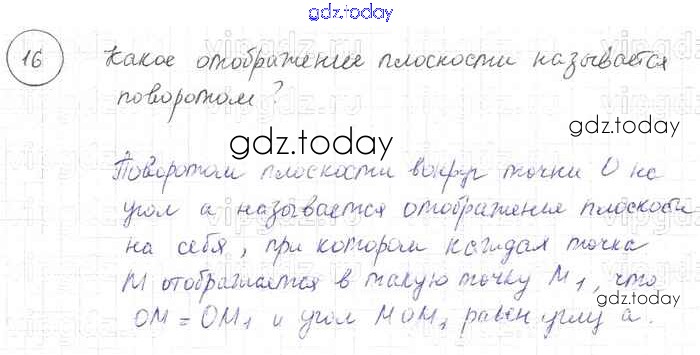 gdz.today
16 Какое отображение плоскости называется
поворотом?
gdz.today
Поворотом плоскости вокруг точки O на
угол a называется отображение плоскости
на себя, при котором каждая точка
M отображается в такую точку M₁, что
gdz.today
OM = OM₁ и угол MOM₁ равен углу a.